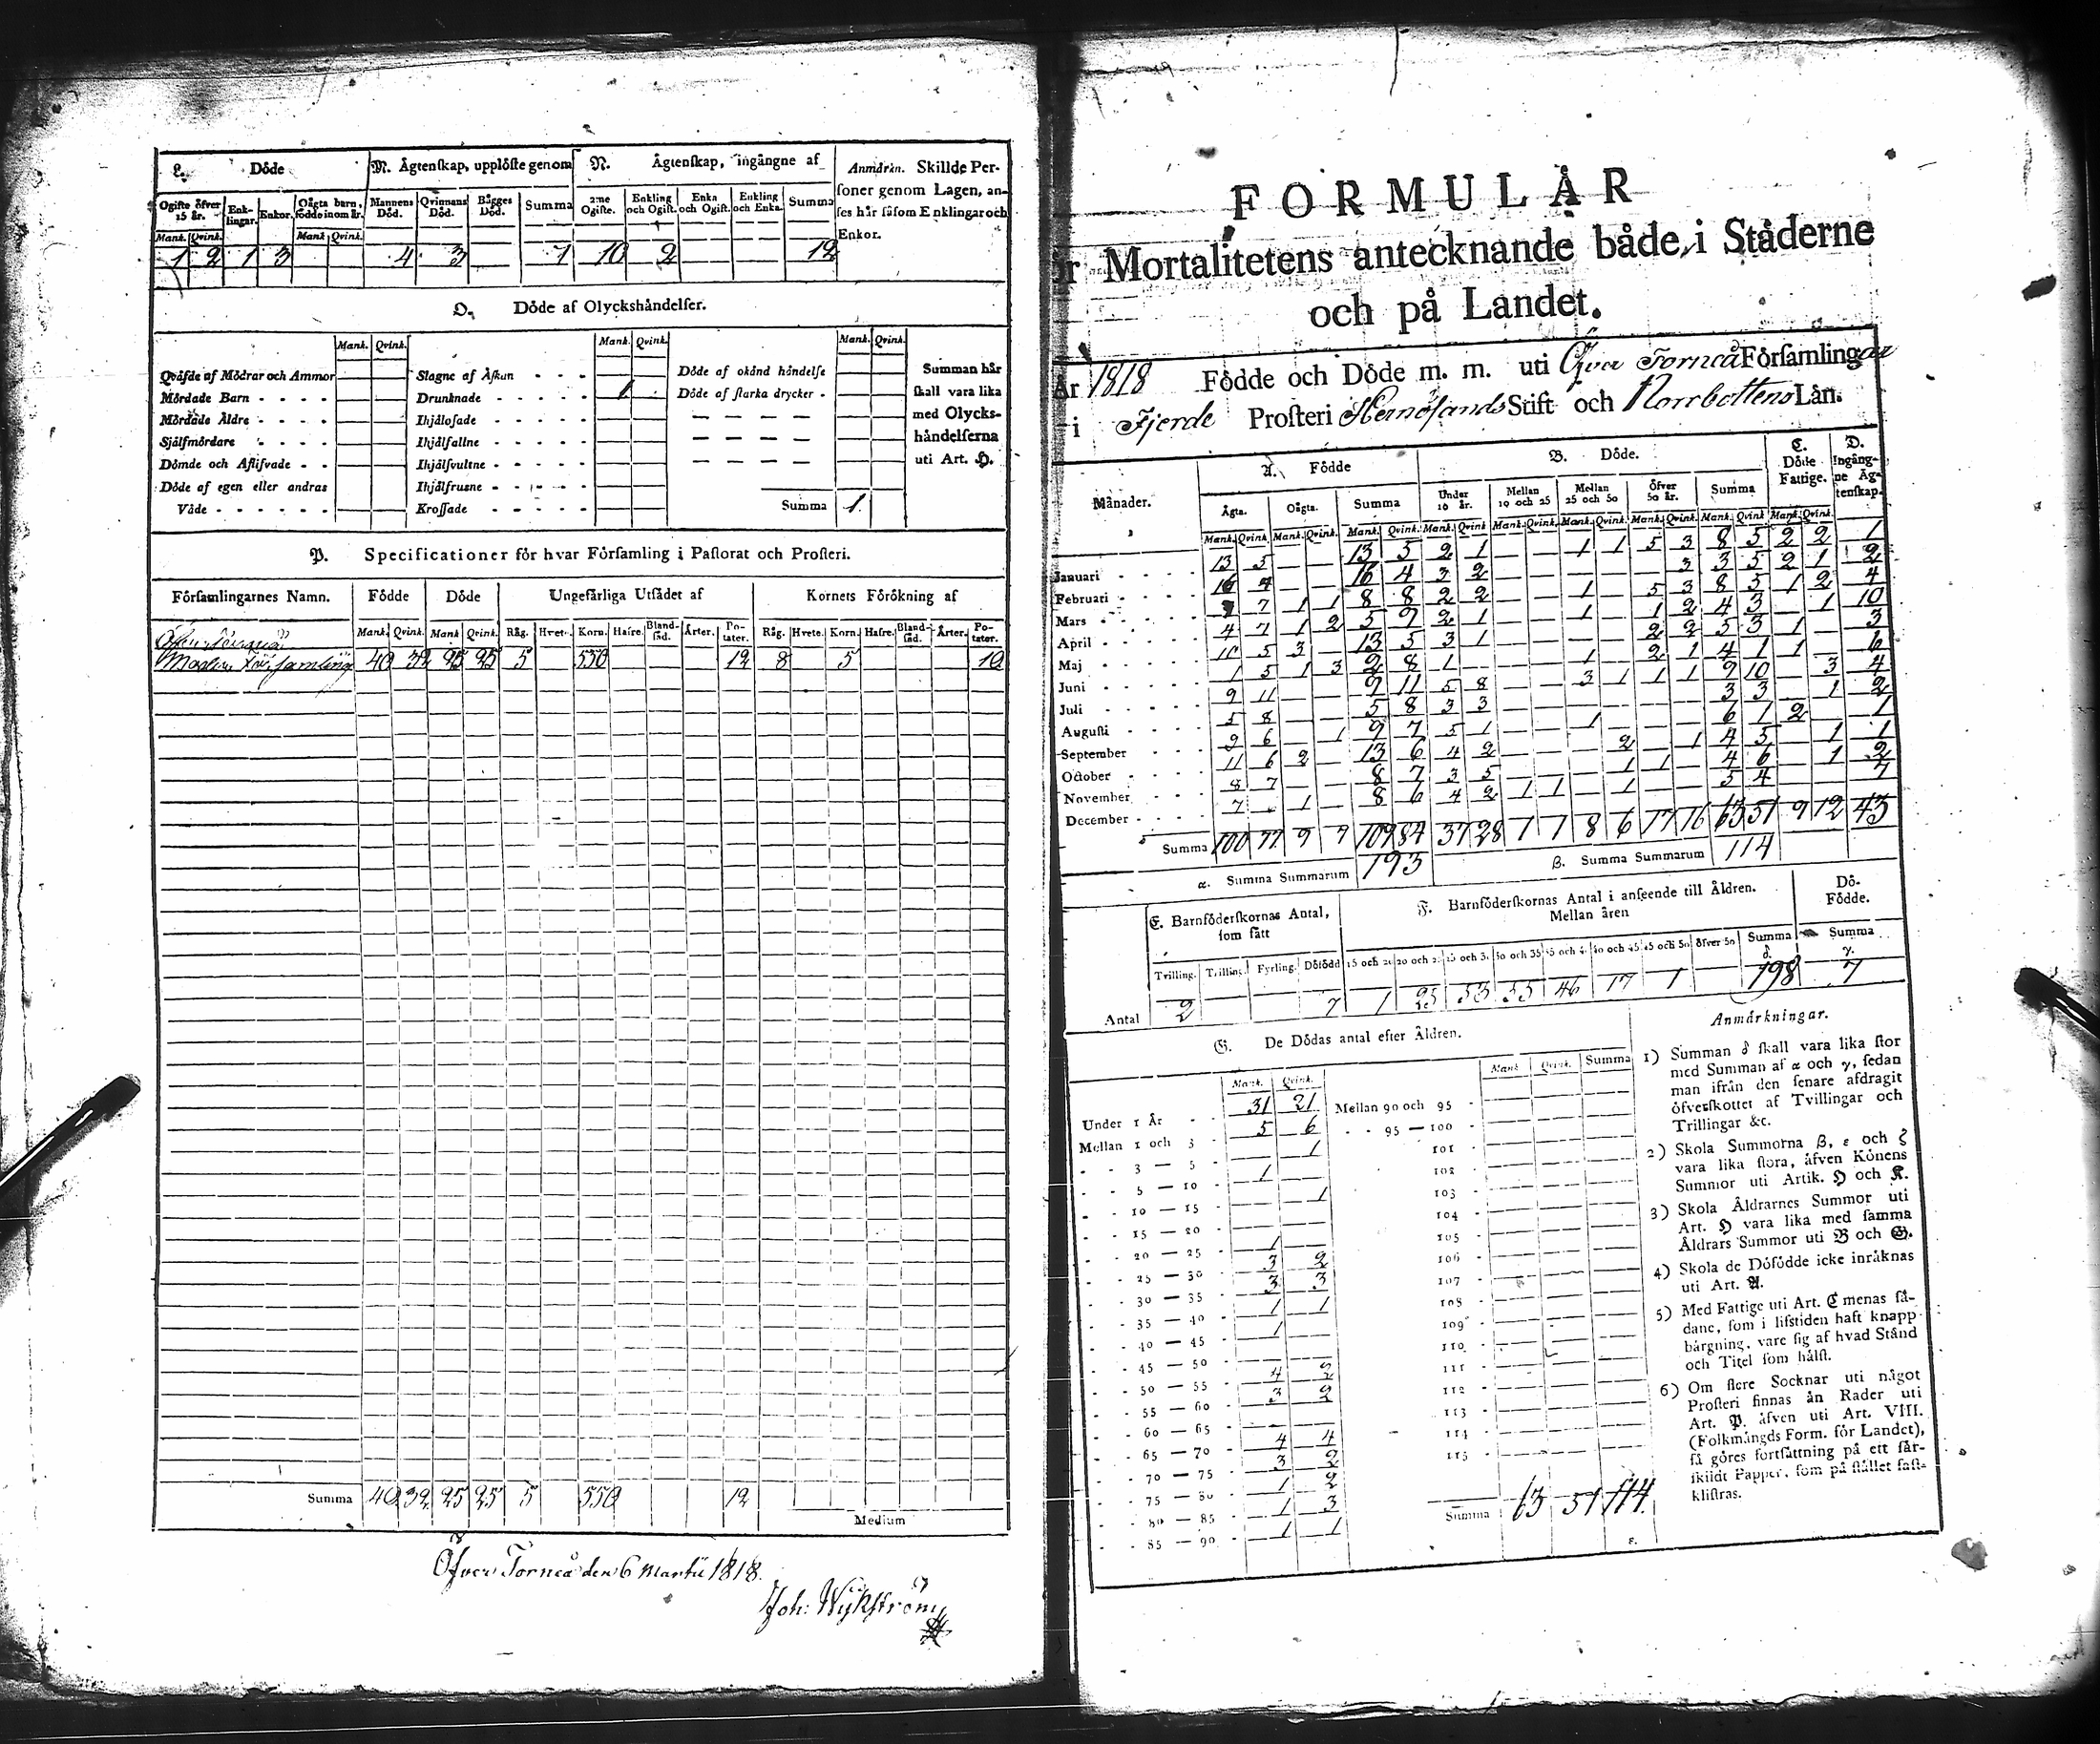 L. Döde
M. Ägtenskap, upplöste genom
N. Ägtenskap, ingångne af
Anmärkn. Skillde Per-
soner genom Lagen, an-
ses här såsom Enklingar och
Enkor.
Ogifte öfver 15 år. Enk-lingar. Enkor. Oägta barn, födde inom år. Mannens Död. Qvinnans Död. Bägges Död. Summa 2:ne Ogifte. Enkling och Ogift. Enka och Ogift. Enkling och Enka. Summa
Mank. Qvink. Mank. Qvink.
1 2 1 3 4 3 7 10 2 12
O. Döde af Olyckshändelser.
Mank. Qvink. Mank. Qvink. Mank. Qvink.
Qväfde af Mödrar och Ammor Slagne af Åskan - - - Döde af okänd händelse Summan här
Mördade Barn - - - - Drunknade - - - - 1 Döde af starka drycker - skall vara lika
Mördade Äldre - - - - Ihjälosade - - - - med Olycks-
Själfmördare - - - - Ihjälfallne - - - - händelserna
Dömde och Aflifvade - - Ihjälsvultne - - - - uti Art. H.
Döde af egen eller andras Ihjälfrusne - - - -
Våde - - - - - - Krossade - - - - - Summa 1.
P. Specificationer för hvar Församling i Pastorat och Prosteri.
Församlingarnes Namn. Födde Döde Ungefärliga Utsädet af Kornets Förökning af
Mank. Qvink. Mank. Qvink. Råg. Hvete. Korn. Hafre. Bland-säd. Ärter. Po-tater. Råg. Hvete. Korn. Hafre. Bland-säd. Ärter. Po-tater.
Öfver Torneå
Moder Församling 40 32 25 25 5 550 12 8 5 10
Summa 40 32 25 25 5 550 12
Medium
Öfver Torneå den 6 Martii 1818.
Joh: Wijkström
FORMULÄR
Mortalitetens antecknande både i Städerne
och på Landet.
År 1818 Födde och Döde m. m. uti Öfver Torneå Församlingar
i Fjerde Prosteri Hernösands Stift och Norrbottens Län.
Månader. A. Födde B. Döde. C. Döde Fattige. D. Ingång-ne Äg-tenskap.
Ägta. Oägta. Summa Under 10 år. Mellan 10 och 25 Mellan 25 och 50 Öfver 50 år. Summa
Mank. Qvink. Mank. Qvink. Mank. Qvink. Mank. Qvink. Mank. Qvink. Mank. Qvink. Mank. Qvink. Mank. Qvink. Mank. Qvink.
Januari - - - - 13 5 13 5 2 1 1 1 5 3 8 5 2 2 1
Februari - - - 16 4 16 4 3 2 3 3 5 2 1 2
Mars - - - - 7 7 1 1 8 8 2 2 1 5 3 8 5 1 2 4
April - - - - 4 7 1 2 5 9 2 1 1 1 2 4 3 1 10
Maj - - - - 10 5 3 13 5 3 1 2 2 5 3 1 3
Juni - - - - 1 5 1 3 2 8 1 1 2 1 4 1 1 6
Juli - - - - 9 11 9 11 5 8 3 1 1 1 9 10 3 4
Augusti - - - - 5 8 5 8 3 3 3 3 1 2
September - - - 9 6 1 9 7 5 1 1 6 1 2 1
October - - - - 11 6 2 13 6 4 2 2 1 4 5 1 1
November - - - 8 7 8 7 3 5 1 1 4 6 1 2
December - - - - 7 1 8 6 4 2 1 1 1 5 4 7
Summa 100 77 9 7 109 84 37 28 1 1 8 6 17 16 63 51 9 12 43
α. Summa Summarum 193 β. Summa Summarum 114
E. Barnföderskornas Antal, som fått
F. Barnföderskornas Antal i anseende till Åldren. Mellan åren
Dö-Födde.
Tvilling. Trilling. Fyrling. Dödfödd. 15 och 20 20 och 25 25 och 30 30 och 35 35 och 40 40 och 45 45 och 50 öfver 50 Summa δ. Summa γ.
Antal 2 7 1 25 53 55 46 17 1 198 7
G. De Dödas antal efter Åldren.
Mank. Qvink. Mank. Qvink. Summa
Under 1 År - - 31 21 Mellan 90 och 95 -
Mellan 1 och 3 - 5 6 - - 95 — 100 -
- - 3 — 5 - 1 101 -
- - 5 — 10 - 1 102 -
- - 10 — 15 - 1 103 -
- - 15 — 20 - 104 -
- - 20 — 25 - 1 105 -
- - 25 — 30 - 3 2 106 -
- - 30 — 35 - 3 3 107 -
- - 35 — 40 - 1 1 108 -
- - 40 — 45 - 1 109 -
- - 45 — 50 - 110 -
- - 50 — 55 - 4 2 111 -
- - 55 — 60 - 3 2 112 -
- - 60 — 65 - 113 -
- - 65 — 70 - 4 4 114 -
- - 70 — 75 - 3 2 115 -
- - 75 — 80 - 1 2
- - 80 — 85 - 1 3
- - 85 — 90 - 1 1
Summa 63 51 114.
ε.
Anmärkningar.
1) Summan δ skall vara lika stor
med Summan af α och γ, sedan
man ifrån den senare afdragit
öfverskottet af Tvillingar och
Trillingar &c.
2) Skola Summorna β, ε och ζ
vara lika stora, äfven Könens
Summor uti Artik. H och K.
3) Skola Åldrarnes Summor uti
Art. H vara lika med samma
Åldrars Summor uti B och G.
4) Skola de Döfödde icke inräknas
uti Art. A.
5) Med Fattige uti Art. C menas så-
dane, som i lifstiden haft knapp
bärgning, vare sig af hvad Stånd
och Titel som hälst.
6) Om flere Socknar uti något
Prosteri finnas än Rader uti
Art. P. äfven uti Art. VIII.
(Folkmängds Form. för Landet),
så göres fortsättning på ett sär-
skildt Papper, som på stället fast-
klistras.